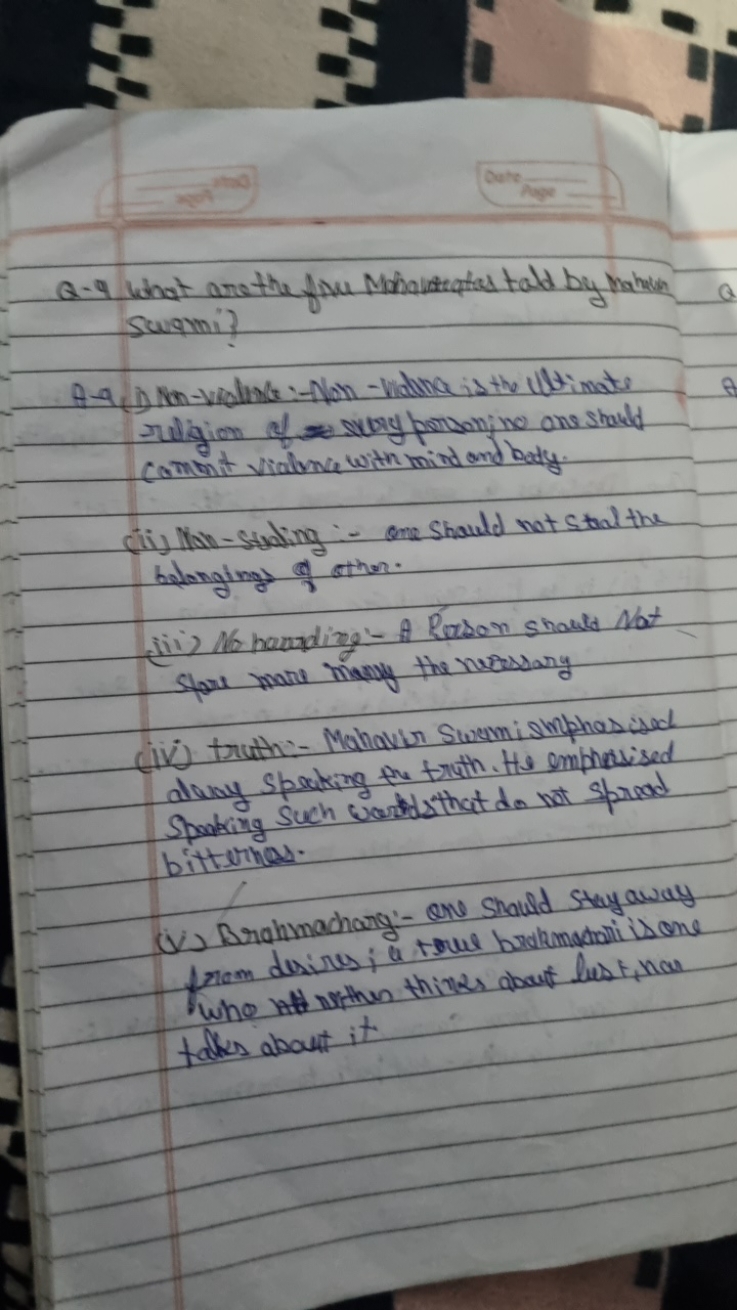 Date
Page
Date
Page
Q-9 What are the five Mahavratas told by Mahavir
Swami?
A-9 i) Non-violence :- Non-violence is the Ultimate
religion of every person; no one should
commit violence with mind and body.
(ii) Non-stealing :- one should not steal the
belongings of other.
(iii) No hoarding :- A Person should Not
store more money the necessary
(iv) truth :- Mahavir Swami emphasised
alway speaking the truth. He emphasised
speaking such words that do not spread
bitterness.
(v) Brahmacharg :- one should stay away
from desires; a true brahmachari is one
who neither thinks about lust, nor
talks about it
Q
A